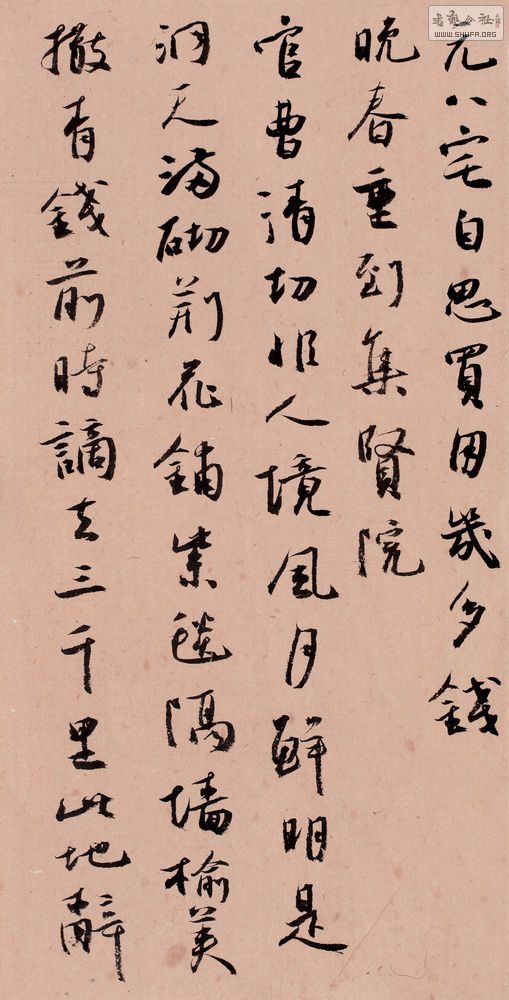 元八宅自思買用幾多錢
晚春重到集賢院
官曹清切非人境風月鮮明是
洞天滿砌荊花鋪紫毯隔墻榆莢
撒青錢前時謫去三千里此地辭
書法会社
www.SHUFA.ORG